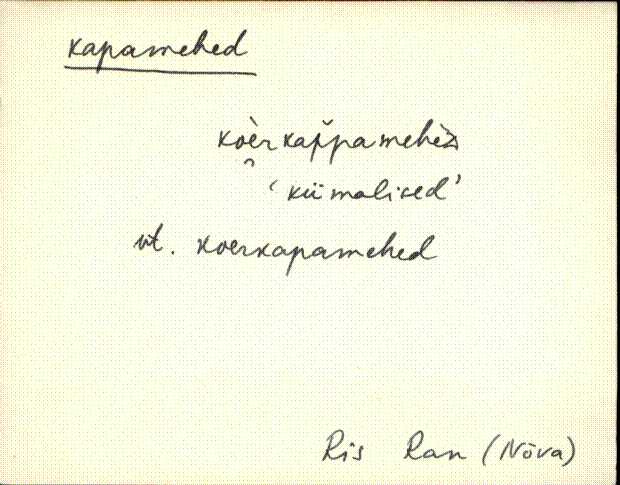 kapamehed
koèr kap̆pamehèᴢ
‘kümalised’
vt. koerkapamehed
Ris Ran (Nõva)